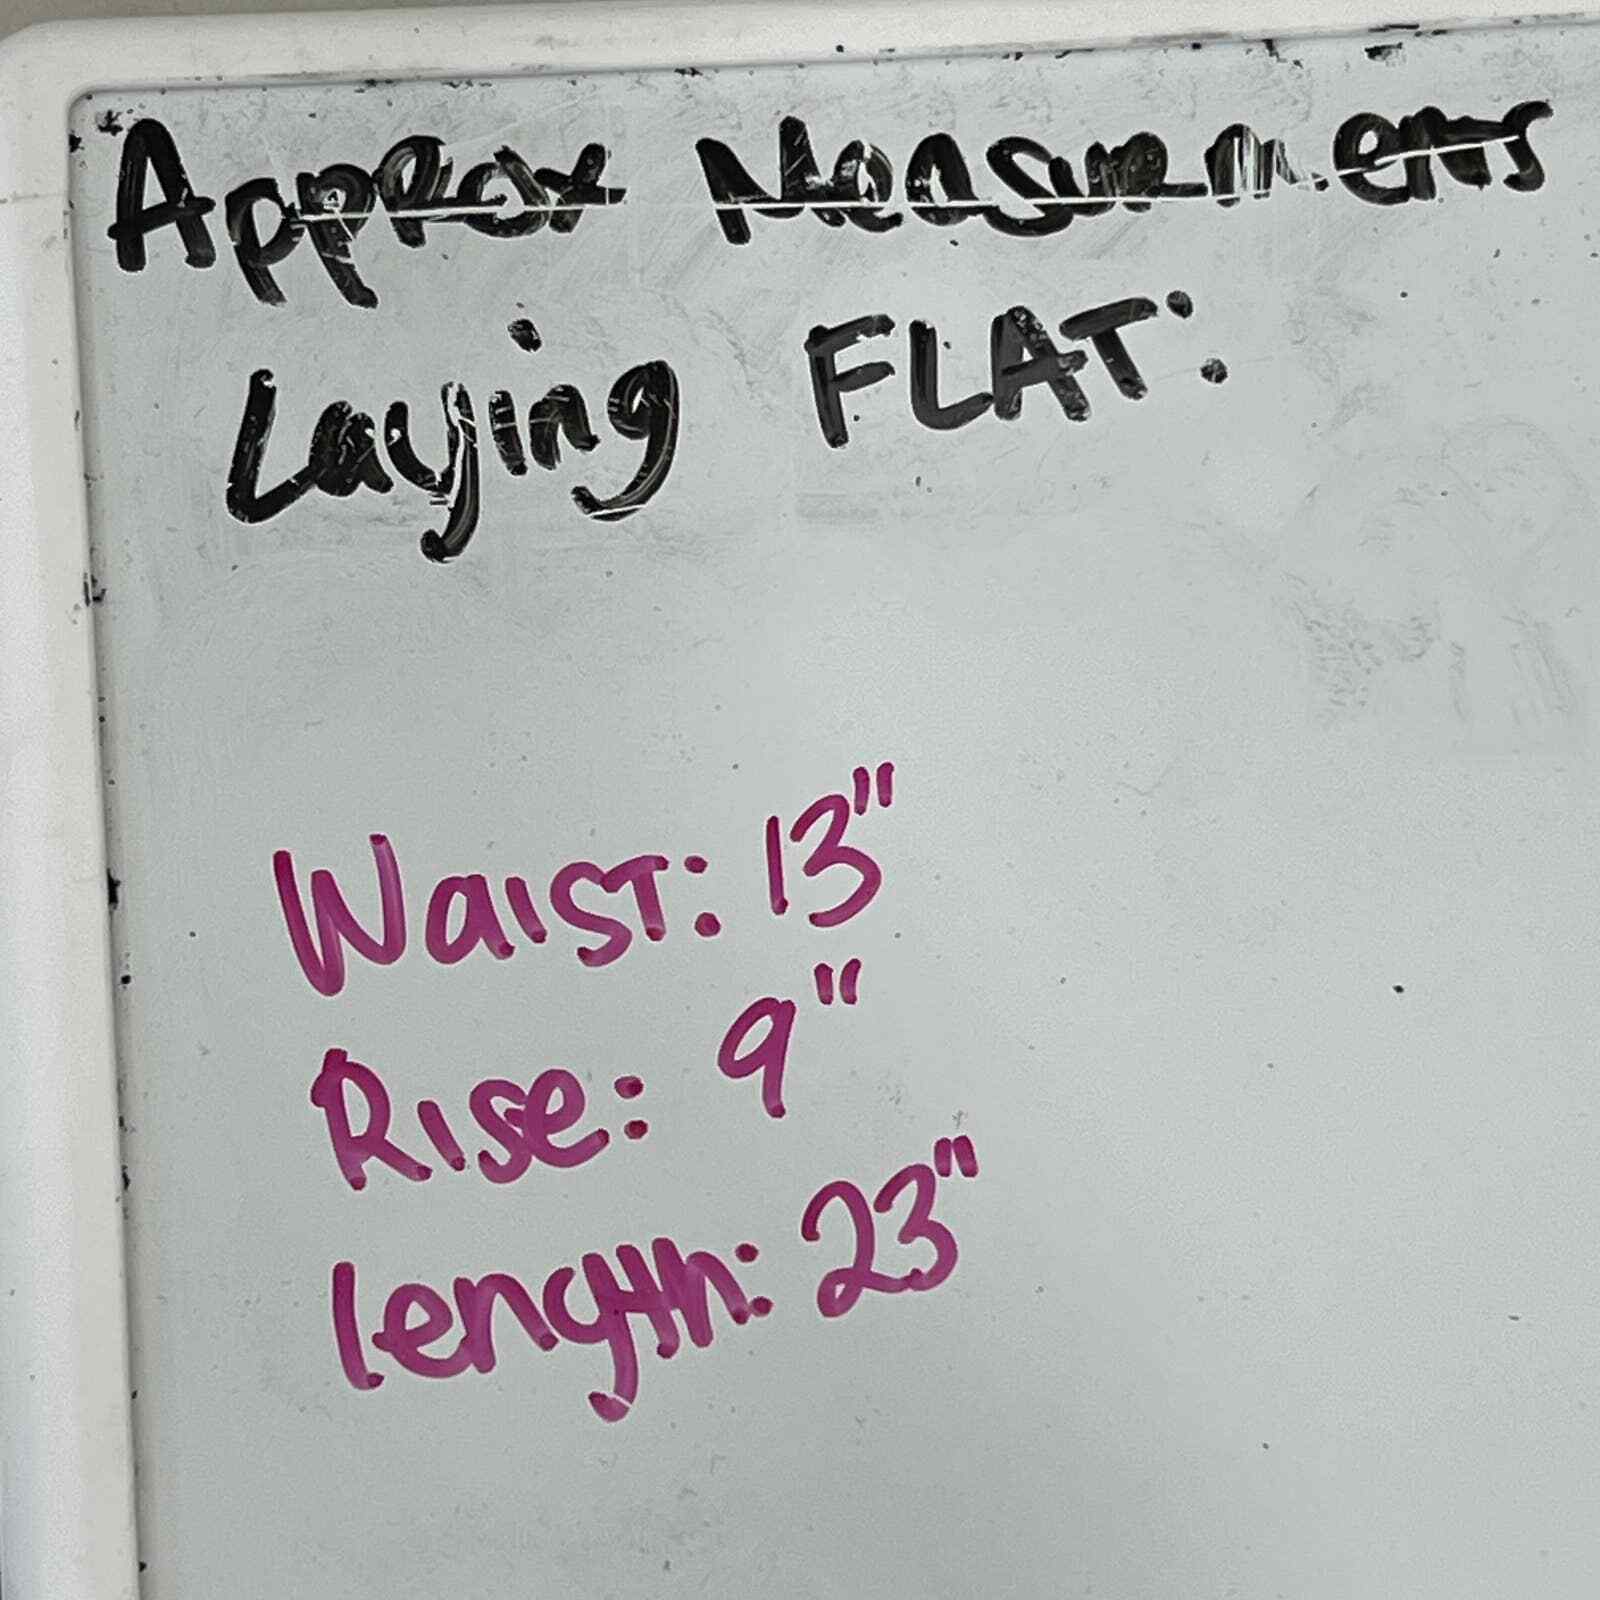 Approx Measurments
Laying FLAT:
Waist: 13"
Rise: 9"
Length: 23"